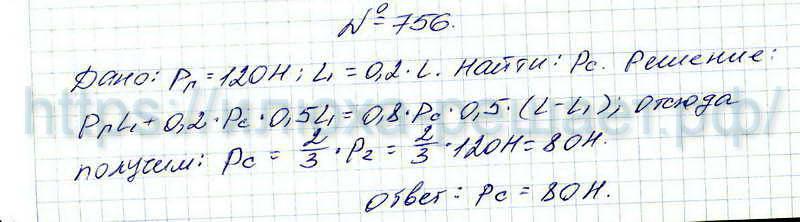 № 756.
Дано: Pп = 120Н; L₁ = 0,2·L. Найти: Pс. Решение:
PпL₁ + 0,2·Pс·0,5L₁ = 0,8·Pс·0,5·(L-L₁); отсюда
получим: Pс = 2/3·P₂ = 2/3·120Н = 80Н.
Ответ: Pс = 80Н.